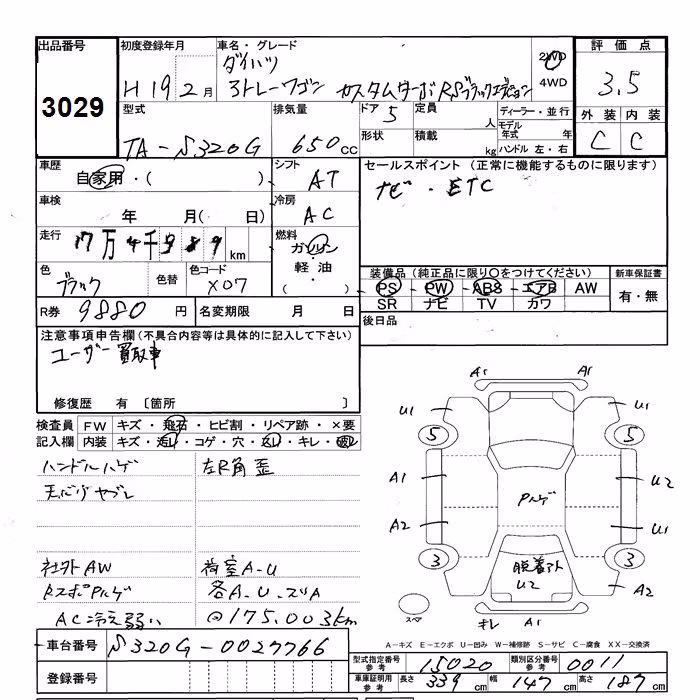 出品番号 初度登録年月 車名・グレード 評価点
3029
H19 2月
ダイハツ
アトレーワゴン カスタムターボRSブラックエディション
2WD
4WD
3.5
型式 排気量 ドア 定員 ディーラー・並行 外装 内装
TA-S320G 650cc 5 人 モデル年式 年 C C
形状 積載 kg ハンドル 左・右
車歴 自家用・( ) シフト AT
セールスポイント (正常に機能するものに限ります)
ナビ・ETC
車検 年 月( 日) 冷房 AC
走行 17万4千989km 燃料 ガソリン
軽油・
( )
色 ブラック 色替 色コード X07
装備品 (純正品に限り〇をつけてください) 新車保証書
PS PW ABS エアB AW 有・無
SR ナビ TV カワ
R券 9880円 名変期限 月 日
後日品
注意事項申告欄 (不具合内容等は具体的に記入して下さい)
ユーザー買取車
修復歴 有 〔箇所 〕
検査員 FW キズ・飛石・ヒビ割・リペア跡・×要
記入欄 内装 キズ・汚れ・コゲ・穴・スレ・キレ・破レ
ハンドルハゲ 左R角歪
天バリヤブレ
社外AW 荷室A-U
各A.U.スリA
AC冷え弱い @175,003km
車台番号 S320G-0027766
登録番号
A1 A1
U1 U1
5 5
A1 U2
Pハゲ
A2 U1
3 3
脱着アト
U2
A2
スペア
キレ A1
A-キズ E-エクボ U-凹み W-補修跡 S-サビ C-腐食 XX-交換済
型式指定番号 参考 15020 類別区分番号 参考 0011
車庫証明用 参考 長さ 339cm 幅 147cm 高さ 187cm